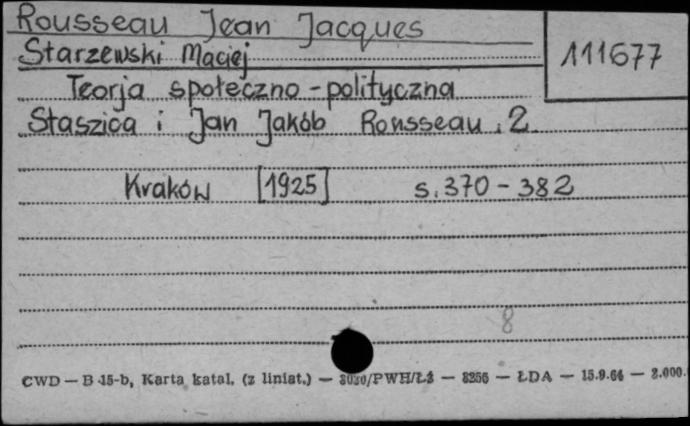 Rousseau Jean Jacques
111677
Starzewski Maciej
Teorja społeczno-polityczna
Staszica i Jan Jakób Rousseau. 2.
Kraków [1925] s. 370-382
8
CWD — B 15-b, Karta katal. (z liniat.) — /PWH/Łż — 8256 — ŁDA — 15.9.64 — 2.000.